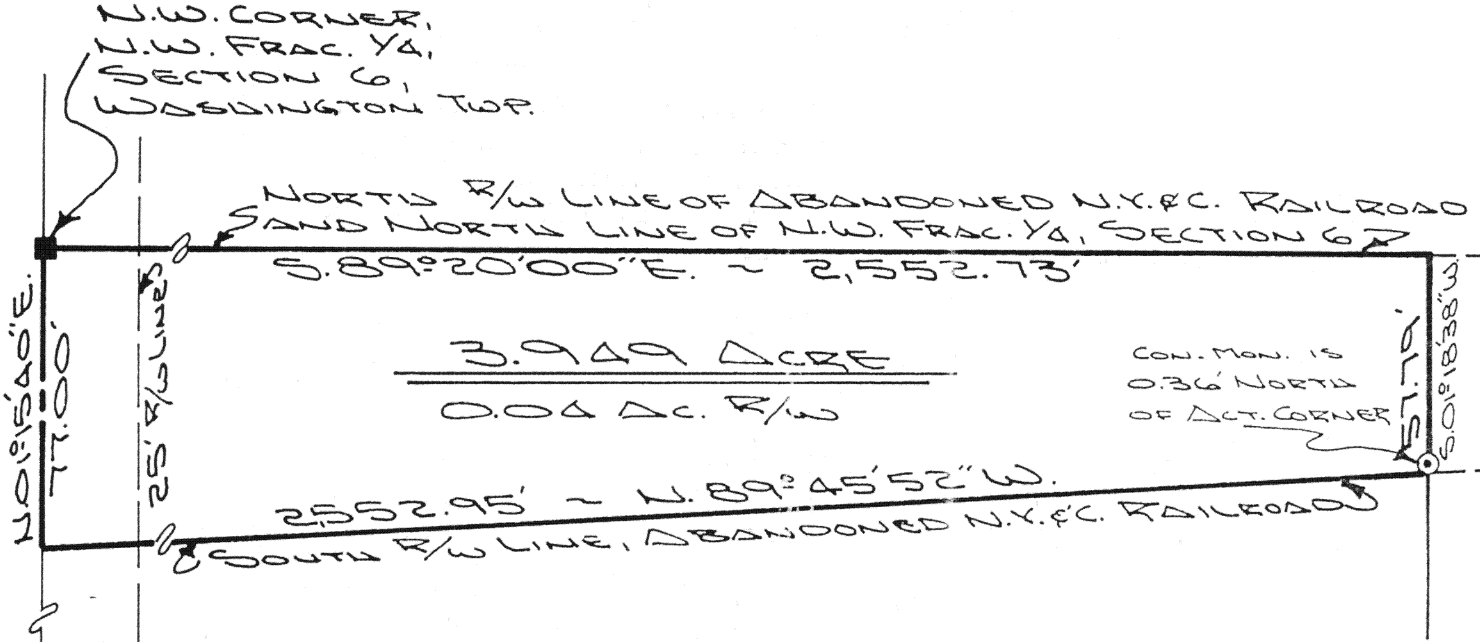 N.W. CORNER,
N.W. FRAC. 1/4,
SECTION 6,
WASHINGTON TWP.
NORTH R/W LINE OF ABANDONED N.Y.&C. RAILROAD
AND NORTH LINE OF N.W. FRAC. 1/4, SECTION 6
S.89°20'00"E. ~ 2,552.73'
N.01°15'40"E.
77.00'
25' R/W LINE
3.949 ACRE
0.04 AC. R/W
CON. MON. IS
0.36' NORTH
OF ACT. CORNER
57.79'
S.01°18'38"W.
2552.95' ~ N.89°45'52"W.
SOUTH R/W LINE, ABANDONED N.Y.&C. RAILROAD